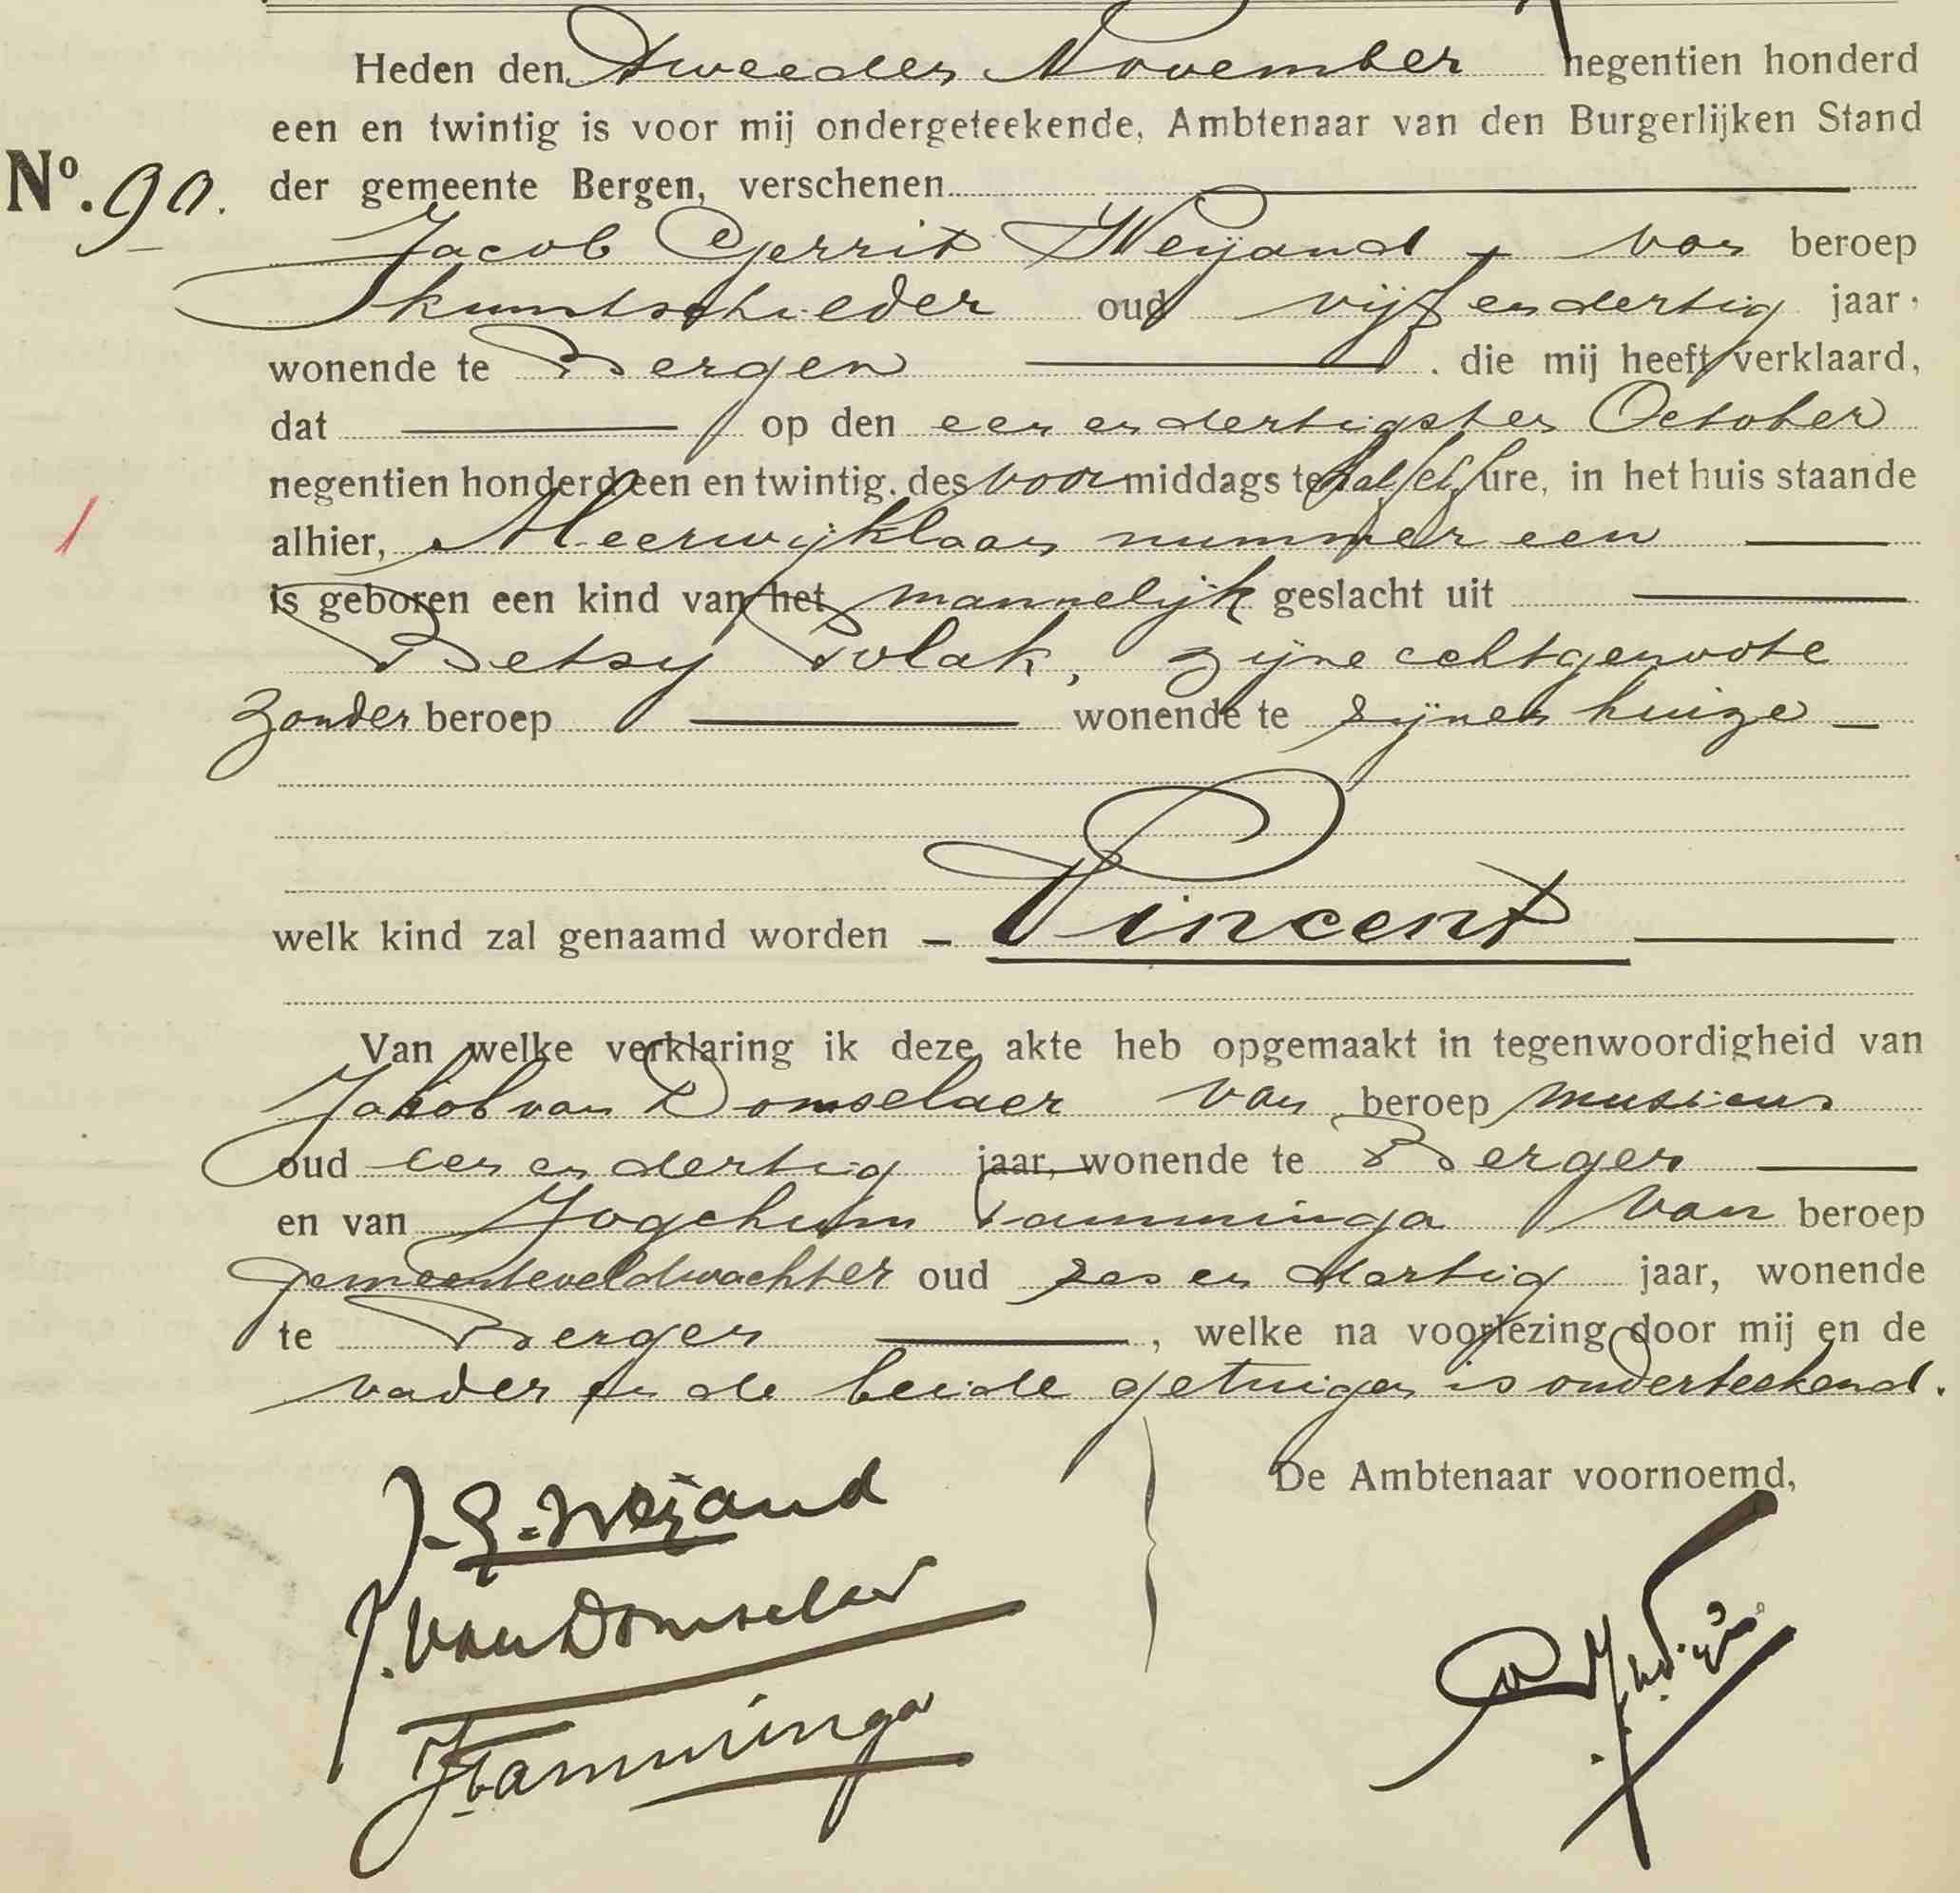 Heden den Tweeden November negentien honderd
een en twintig is voor mij ondergeteekende, Ambtenaar van den Burgerlijken Stand
No. 90. der gemeente Bergen, verschenen
Jacob Gerrit Weijand van beroep
kunstschilder oud vijf en dertig jaar,
wonende te Bergen, die mij heeft verklaard,
dat op den een en dertigsten October
negentien honderd een en twintig, des voormiddags te half elf ure, in het huis staande
alhier, Meerwijklaan nummer een
is geboren een kind van het mannelijk geslacht uit
Betsy Polak, zijne echtgenoote
zonder beroep wonende te zijnen huize
welk kind zal genaamd worden - Vincent
Van welke verklaring ik deze akte heb opgemaakt in tegenwoordigheid van
Jakob van Domselaer van beroep musicus
oud een en dertig jaar, wonende te Bergen
en van Jogchum Tamminga van beroep
gemeenteveldwachter oud zes en dertig jaar, wonende
te Bergen, welke na voorlezing door mij en de
vader en de beide getuigen is onderteekend.
De Ambtenaar voornoemd,
J. G. Weijand
J. van Domselaer
J Tamminga